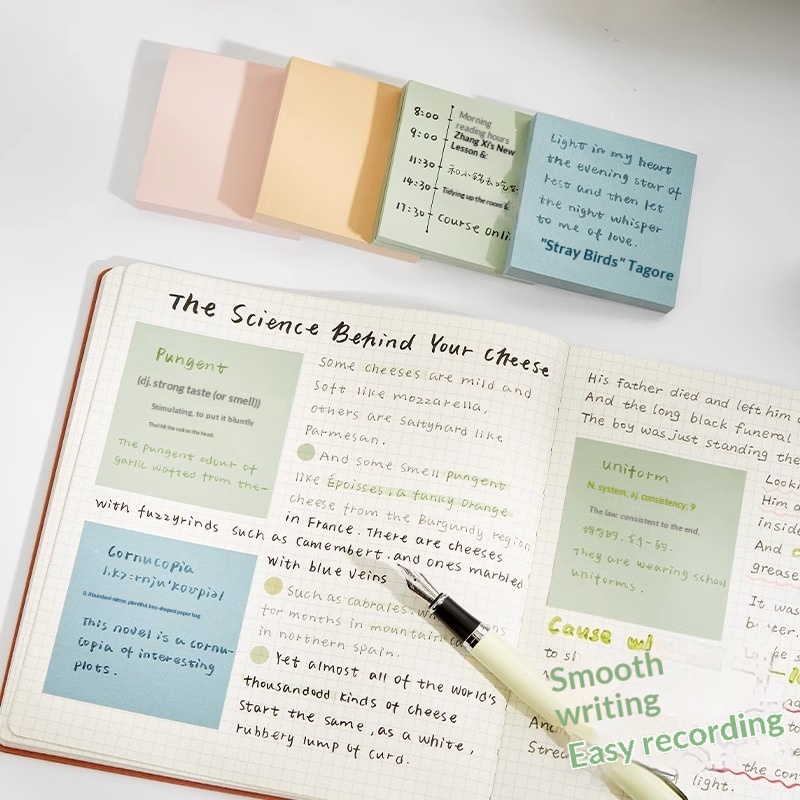 8:00
Morning
reading hours
9:00
Zhang Xi's New
Lesson 6:
11:30
14:30
Tidying up the room &
17:30
Course onli
Light in my heart
the evening star of
rest and then let
the night whisper
to me of love.
"Stray Birds" Tagore
The Science Behind Your Cheese
Pungent
(dj. strong taste (or smell))
Stimulating, to put it bluntly
That hit the nail on the head.
The pungent odour of
garlic wafted from the-
Some cheeses are mild and
soft like mozzarella,
others are saltyhard like
Parmesan.
And some smell pungent
like Époisses, a funky orange
cheese from the Burgundy region
in France. There are cheeses
with fuzzyrinds such as Camembert, and ones marbled
with blue veins
Cornucopia
This novel is a cornu-
copia of interesting
plots.
Such as cabrales,
for months in mountain ca
in northern spain.
Yet almost all of the world's
thousandodd kinds of cheese
start the same, as a white,
rubbery lump of curd.
His father died and left him
And the long black funeral
The boy was just standing the
uniform
N. system; aj. consistency; 9
The law: consistent to the end.
They are wearing school
uniforms.
Looki
Him a
inside
And
grease
It was
Cause wi
to sl
Smooth
writing
Easy recording
And
Strea
the con
light.